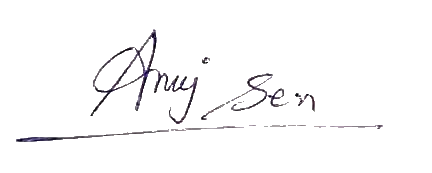 Anuj Sen